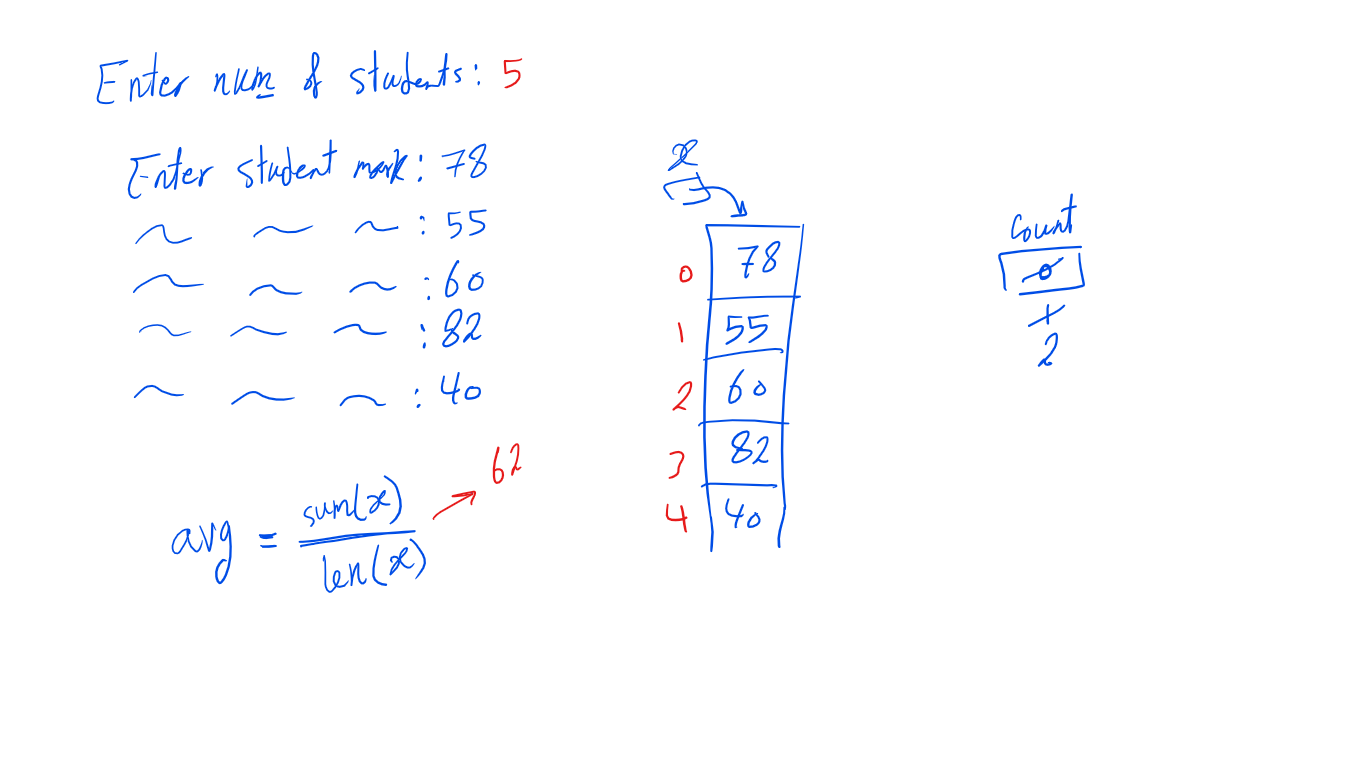 Enter num of students: 5
Enter student mark: 78
: 55
: 60
: 82
: 40
avg = sum(x)
len(x)
62
x
0 78
1 55
2 60
3 82
4 40
count
0
1
2